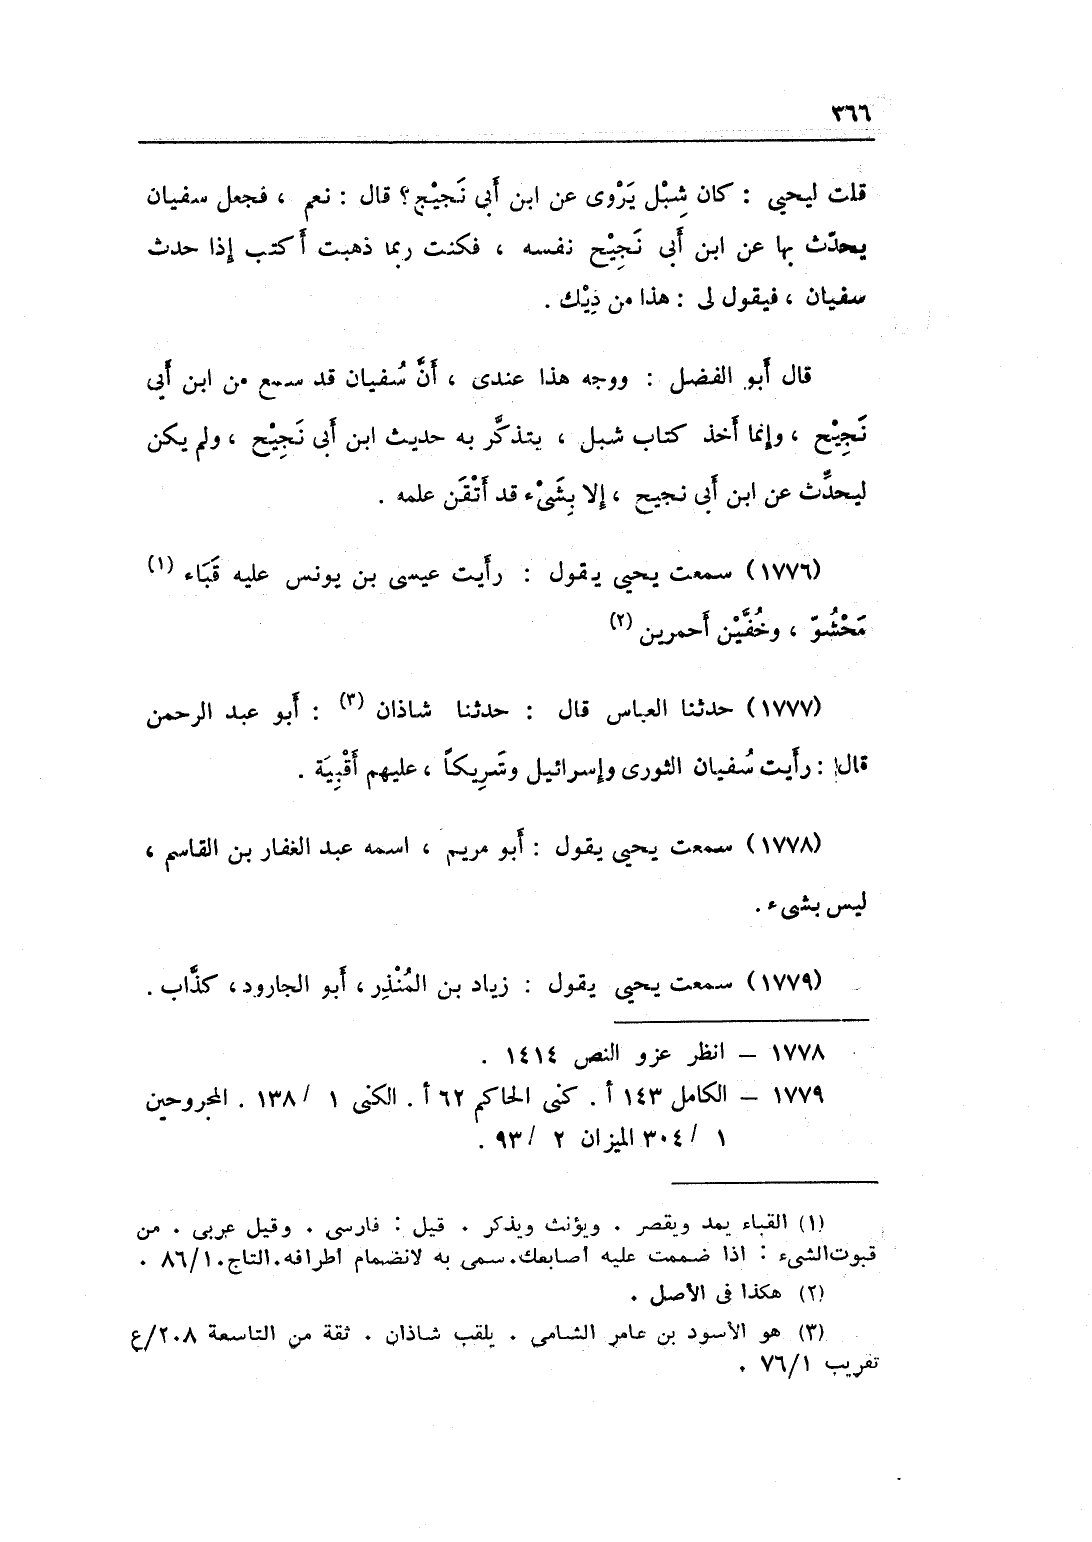 ٣٦٦
قلت ليحيى : كان شِبْل يَرْوى عن ابن أَبي نَجِيْح؟ قال : نعم ، فجعل سفيان
يحدّث بها عن ابن أَبى نَجِيْح نفسه ، فكنت ربما ذهبت أَكتب إذا حدث
سفيان ، فيقول لى : هذا من ذِيْك .
قال أَبو الفضل : ووجه هذا عندى ، أَنَّ سُفيان قد سمع من ابن أَبي
نَجِيْح ، وإنما أَخذ كتاب شبل ، يتذكَّر به حديث ابن أَبى نَجِيْح ، ولم يكن
ليحدِّث عن ابن أَبى نجيح ، إلا بِشَىْء قد أَتْقَن علمه .
(١٧٧٦) سمعت يحيى يقول : رأَيت عيسى بن يونس عليه قَبَاء (١)
مَحْشُوّ ، وخُفَّيْن أَحمرين (٢)
(١٧٧٧) حدثنا العباس قال : حدثنا شاذان (٣) : أَبو عبد الرحمن
قال : رأَيت سُفيان الثورى وإسرائيل وشَرِيكاً ، عليهم أَقْبِيَة .
(١٧٧٨) سمعت يحيى يقول : أَبو مريم ، اسمه عبد الغفار بن القاسم ،
ليس بشىء .
(١٧٧٩) سمعت يحيى يقول : زياد بن المُنْذِر ، أَبو الجارود ، كذَّاب .
١٧٧٨ – انظر عزو النص ١٤١٤ .
١٧٧٩ – الكامل ١٤٣ أ . كنى الحاكم ٦٢ أ . الكنى ١ / ١٣٨ . المجروحين
١ / ٣٠٤ الميزان ٢ / ٩٣ .
(١) القباء يمد ويقصر . ويؤنث ويذكر . قيل : فارسى . وقيل عربى . من
قبوت الشىء : اذا ضممت عليه أصابعك . سمى به لانضمام أطرافه . التاج . ٨٦/١ .
(٢) هكذا فى الأصل .
(٣) هو الأسود بن عامر الشامى . يلقب شاذان . ثقة من التاسعة ٢٠٨/ع
تقريب ٧٦/١ .